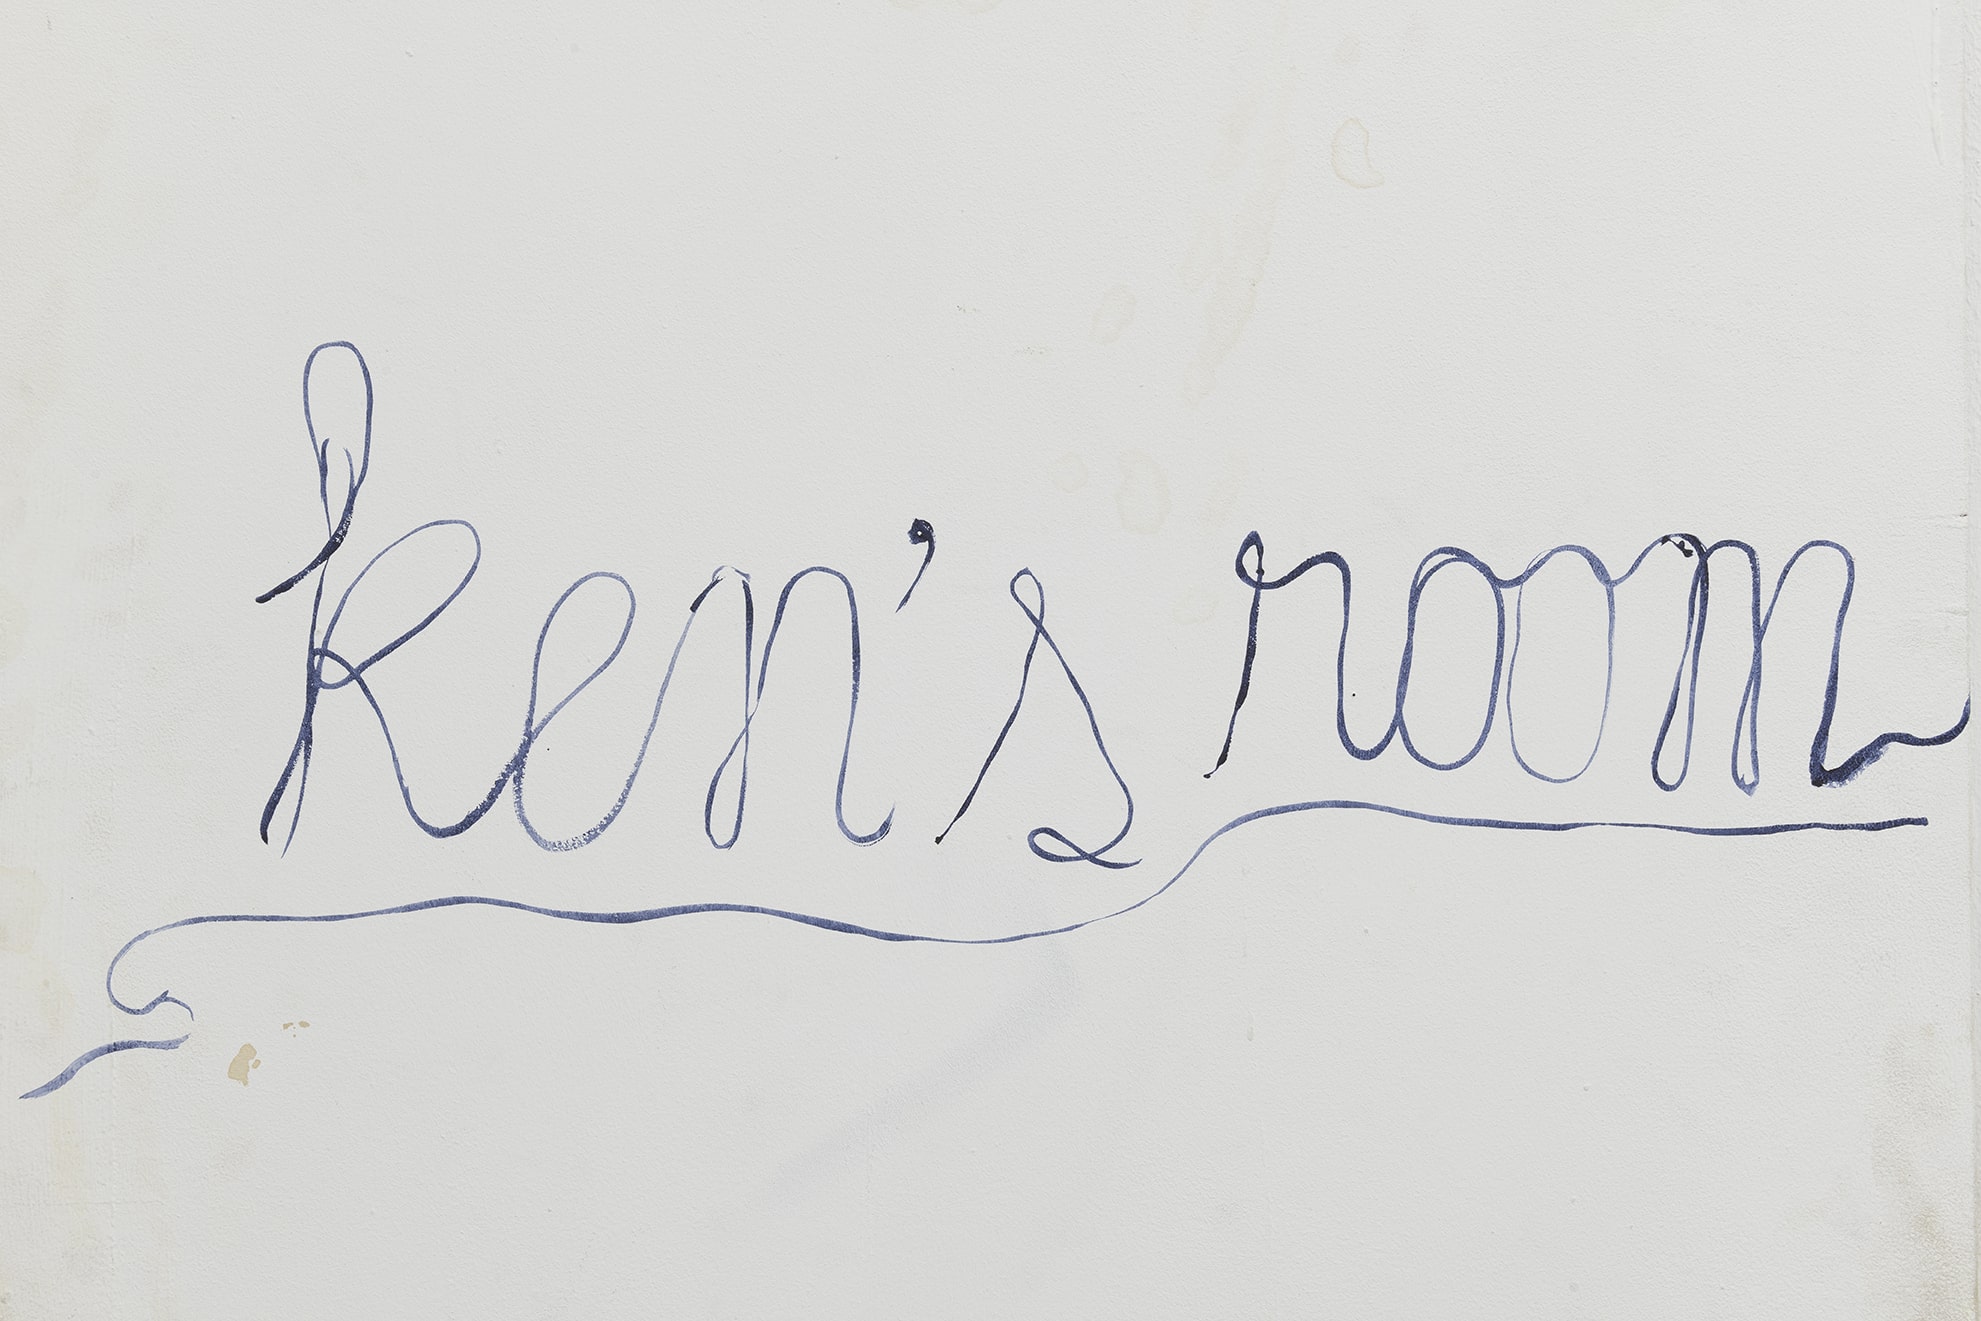 ken's room